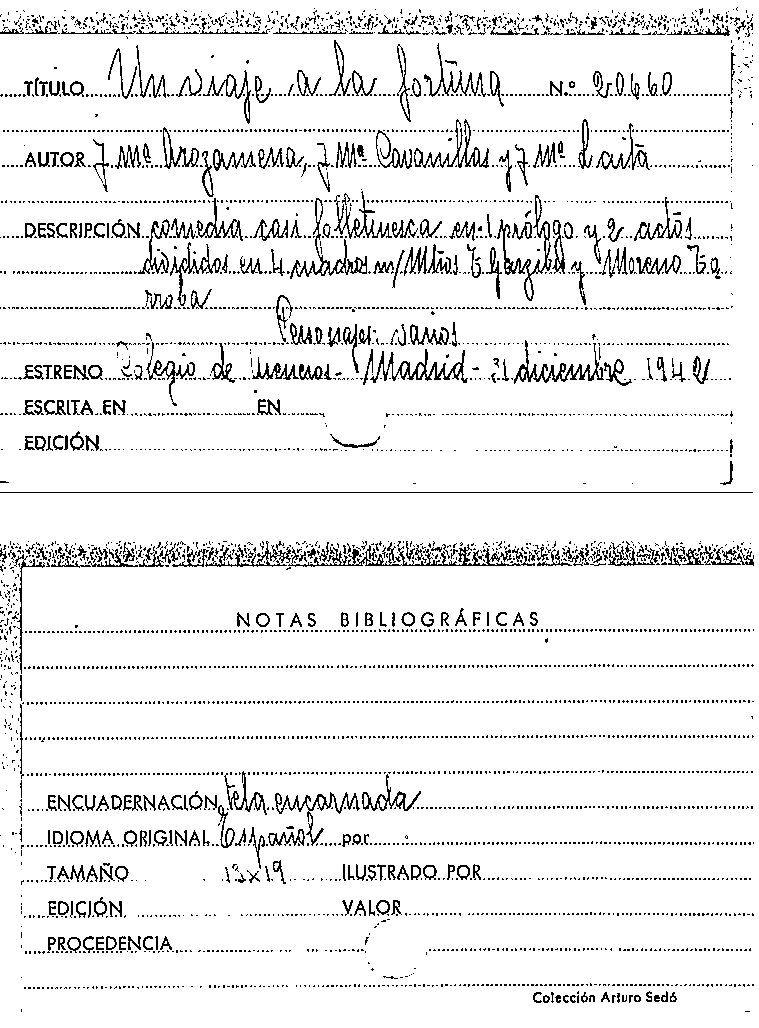 TÍTULO Un viaje a la fortuna N.º 20660
AUTOR J Mª Arozamena, J Mª Cavanillas y J Mª Laita
DESCRIPCIÓN comedia casi folletinesca en 1 prólogo y 2 actos
divididos en 4 cuadros m/ Mtros y Moreno
rroba
Personajes: varios
ESTRENO Colegio de - Madrid - 31 diciembre 1942
ESCRITA EN EN
EDICIÓN
NOTAS BIBLIOGRÁFICAS
ENCUADERNACIÓN tela encarnada
IDIOMA ORIGINAL Español por
TAMAÑO 13x19 ILUSTRADO POR
EDICIÓN VALOR
PROCEDENCIA
Colección Arturo Sedó